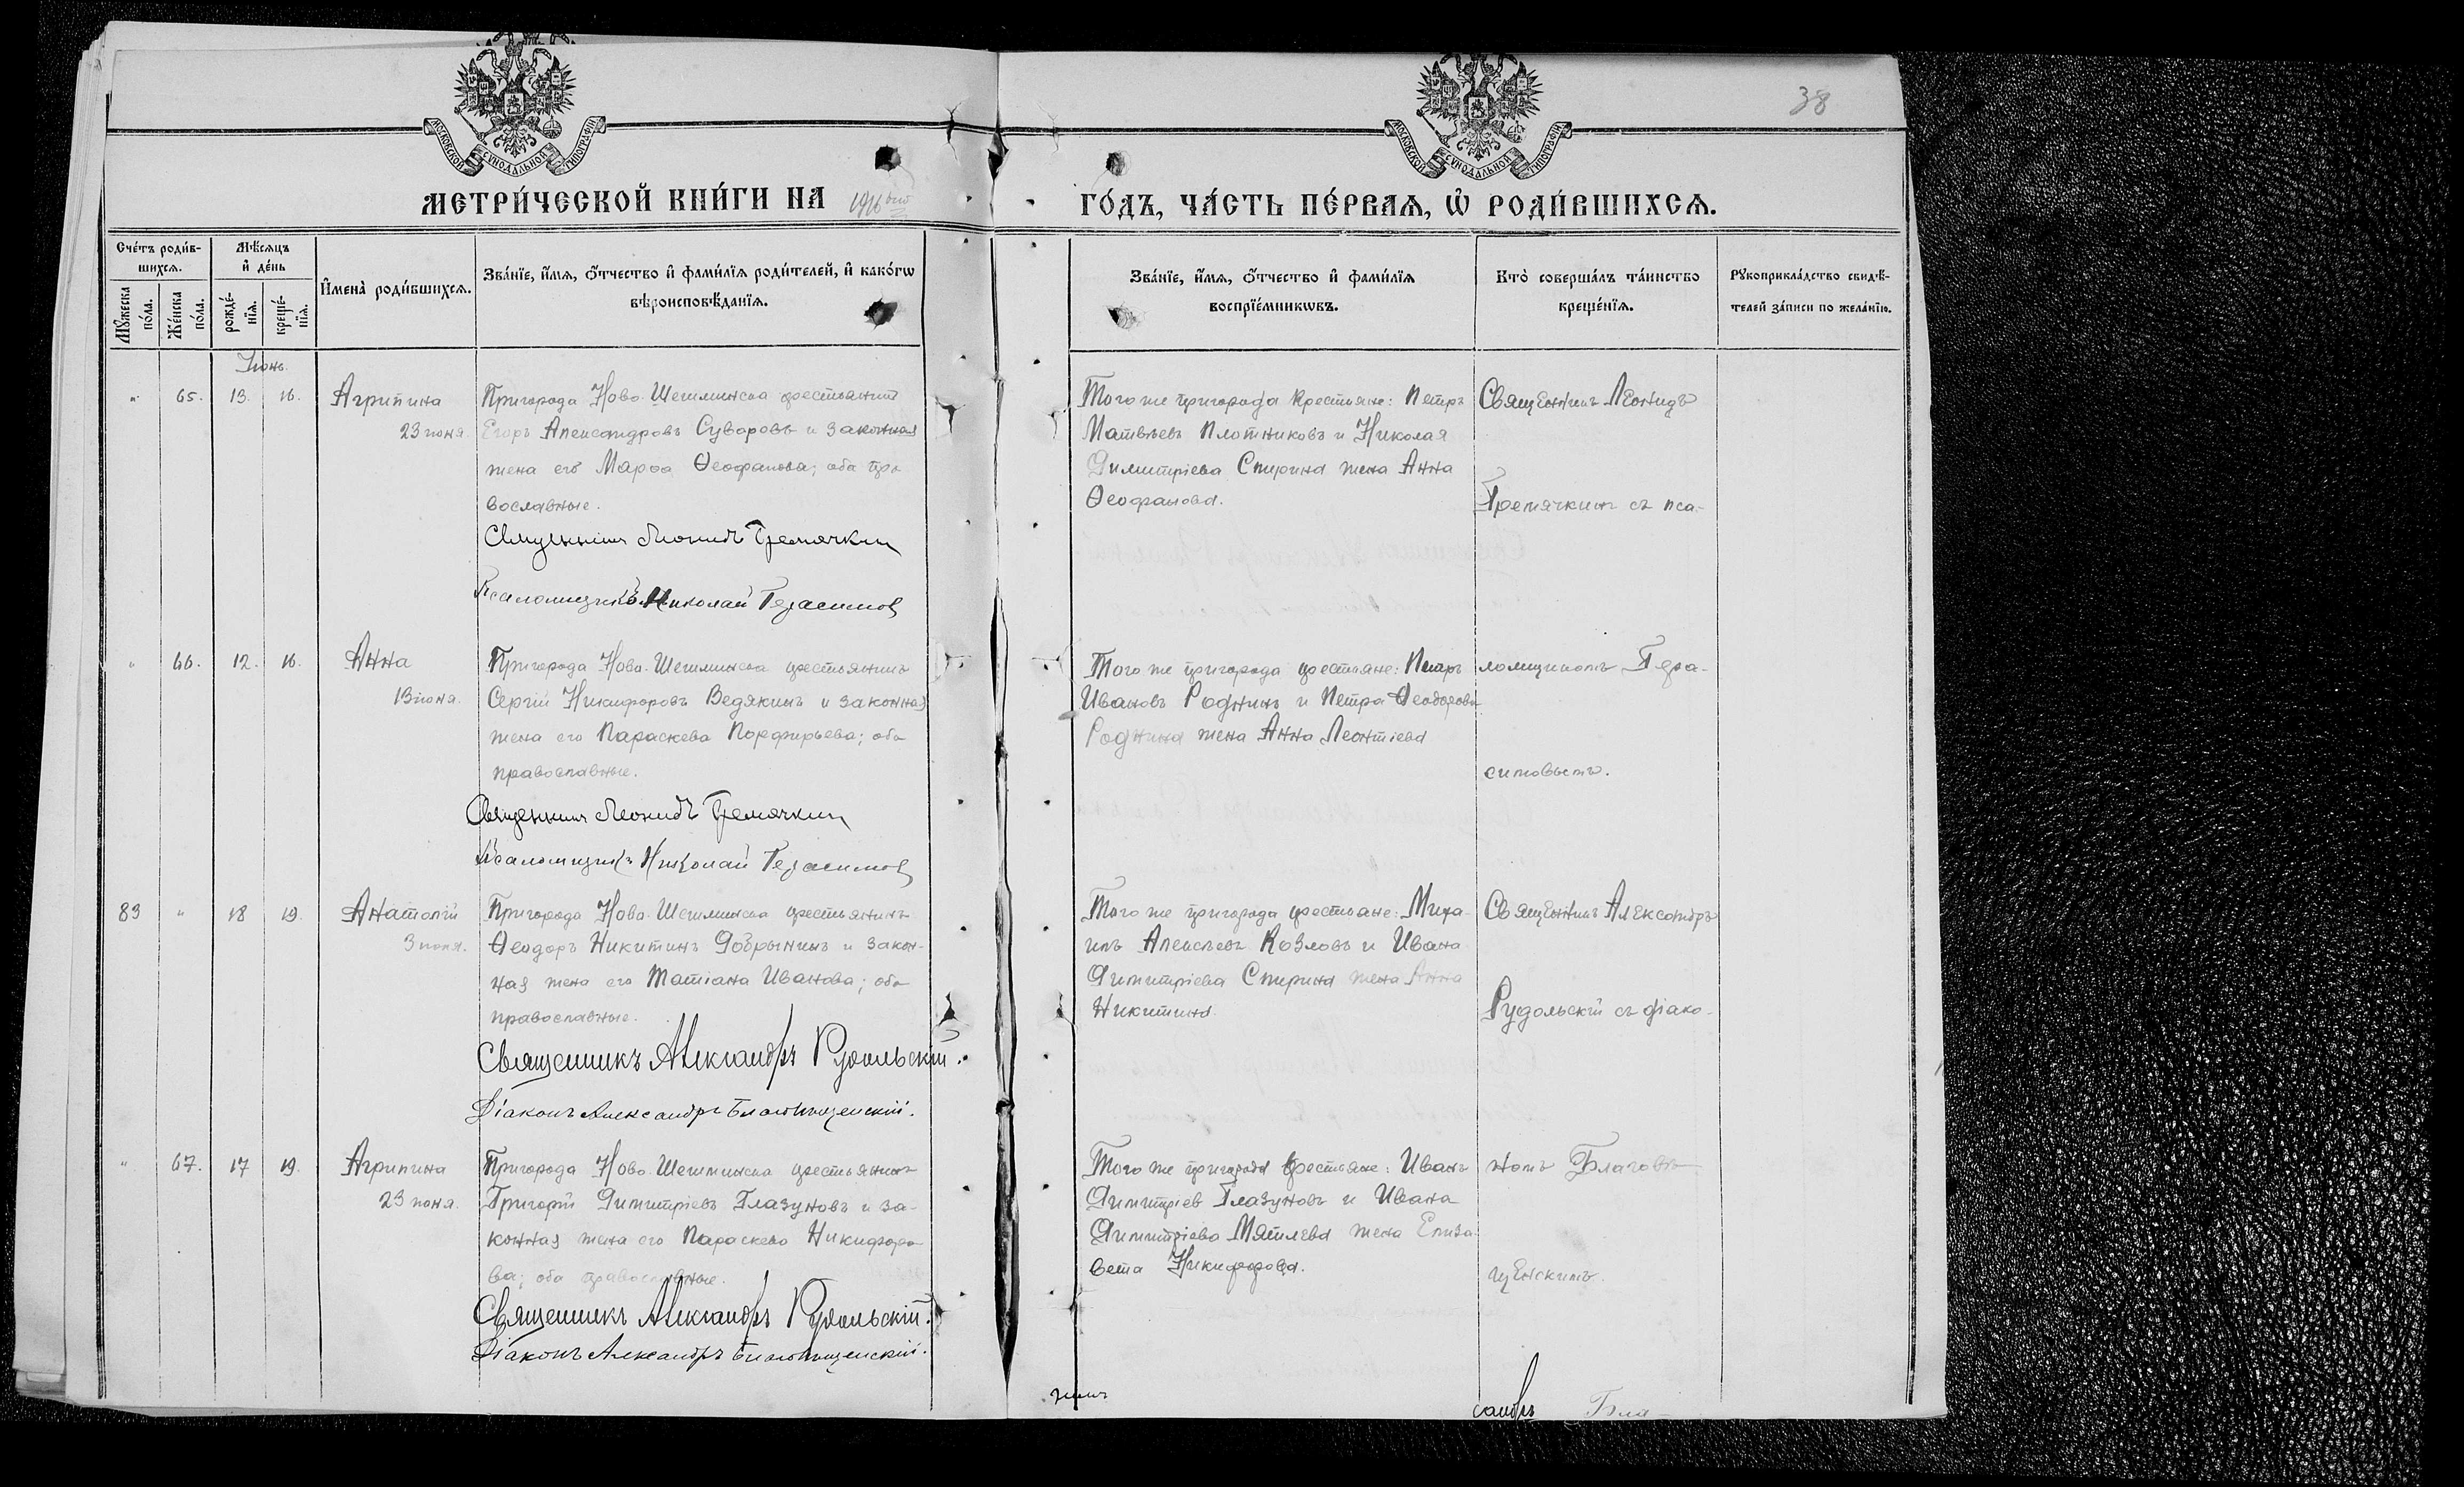 38
МОСКОВСКОЙ СѴНОДАЛЬНОЙ ТИПОГРАФІИ
МОСКОВСКОЙ СѴНОДАЛЬНОЙ ТИПОГРАФІИ
МЕТРИ́ЧЕСКОЙ КНИ́ГИ НА 1916 ГО́ДЪ, ЧА́СТЬ ПЕ́РВАѦ, Ѡ҆ РОДИ́ВШИХСѦ.
Сче́тъ роди́в-
шихсѧ.
Мѣ́сѧцъ
и҆ де́нь
Мꙋ́жеска
по́ла.
Же́нска
по́ла.
рожде́-
нїѧ.
креще́-
нїѧ.
И҆мена̀ роди́вшихсѧ.
Зва́нїе, и҆́мѧ, ѻ҆́тчество и҆ фами́лїѧ роди́телей, и҆ како́гѡ
вѣроисповѣ́данїѧ.
Зва́нїе, и҆́мѧ, ѻ҆́тчество и҆ фами́лїѧ
воспрїе́мникѡвъ.
Кто̀ соверша́лъ та́инство
креще́нїѧ.
Рꙋкоприкла́дство свидѣ́-
телей за́писи по жела́нїю.
Іюнь.
" 65. 13. 16. Агрипина
23 іюня.
Пригорода Ново-Шешминска крестьянинъ
Егоръ Александровъ Суворовъ и законная
жена его Марѳа Ѳеофанова; оба пра
вославные.
Священникъ Леонидъ Гремячкин
Псаломщикъ Николай Герасимов
Того же пригорода крестьяне: Петръ
Матвѣевъ Плотниковъ и Николая
Димитріева Спирина жена Анна
Ѳеофанова.
Священникъ Леонидъ
Гремячкинъ съ пса-
" 66. 12. 16. Анна
13 іюня.
Пригорода Ново-Шешминска крестьянинъ
Сергій Никифоровъ Ведякинъ и законная
жена его Параскева Порфирьева; оба
православные.
Священникъ Леонидъ Гремячкин
Псаломщикъ Николай Герасимов
Того же пригорода крестьяне: Петръ
Ивановъ Роднинъ и Петра Ѳеодорова
Роднина жена Анна Леонтіева
ломщикомъ Гера-
симовымъ.
83 " 18 19. Анатолій
3 іюля.
Пригорода Ново-Шешминска крестьянинъ
Ѳеодоръ Никитинъ Добрынинъ и закон-
ная жена его Татіана Иванова; оба
православные.
Священникъ Александръ Рудольскій.
Діаконъ Александръ Благовѣщенскій.
Того же пригорода крестьяне: Миха-
илъ Алексѣевъ Козловъ и Ивана
Димитріева Спирина жена Анна
Никитина.
Священникъ Александръ
Рудольскій съ діако-
" 67. 17 19. Агрипина
23 іюня.
Пригорода Ново-Шешминска крестьянинъ
Григорій Димитріевъ Глазуновъ и за-
конная жена его Параскева Никифоро
ва; оба православные.
Священникъ Александръ Рудольскій.
Діаконъ Александръ Благовѣщенскій.
Того же пригорода крестьяне: Иванъ
Димитріев Глазуновъ и Ивана
Димитріева Мятлева жена Елиза
вета Никифорова.
номъ Благовѣ-
щенскимъ.
сандръ Бла-